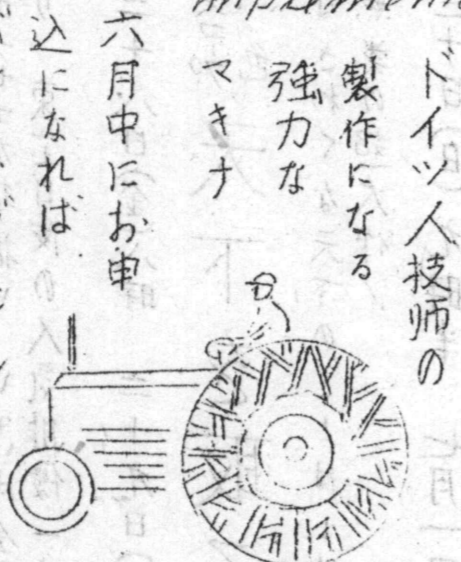 ドイツ人技師の
製作になる
強力な
マキナ
六月中にお申
込になれば